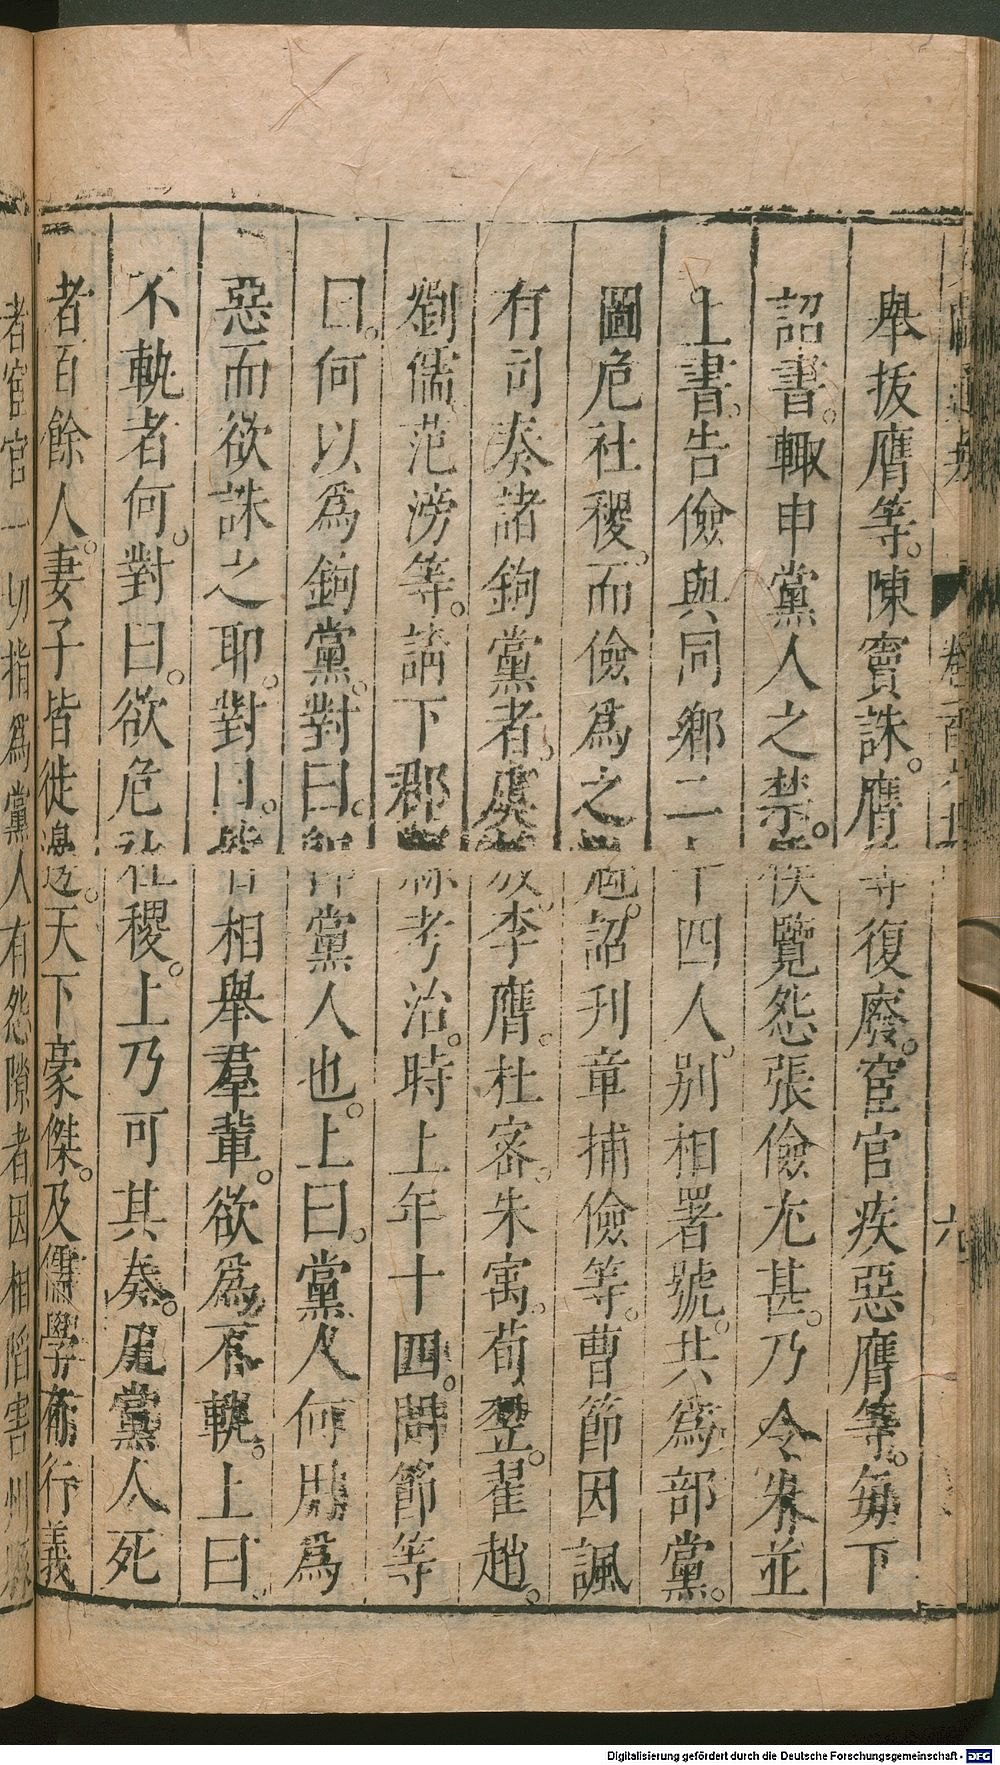 舉拔膺等。陳竇誅。膺等復廢。宦官疾惡膺等。每下
詔書。輙申黨人之禁。侯覽怨張儉尤甚。乃令朱並
上書。告儉與同鄉二十四人。別相署號。共爲部黨。
圖危社稷。而儉爲之魁。詔刋章捕儉等。曹節因諷
有司奏諸鉤黨者。虞放。李膺。杜密。朱㝢。荀翌。翟超。
劉儒。范滂等。請下郡縣考治。時上年十四。問節等
曰。何以爲鉤黨。對曰。鉤黨人也。上曰。黨人何用爲
惡而欲誅之耶。對曰。皆相舉羣輩。欲爲不軌。上曰。
不軌者何。對曰。欲危社稷。上乃可其奏。凡黨人死
者百餘人。妻子皆徙邊。天下豪傑。及儒學有行義
者宦官一切指爲黨人有怨隙者因相陷害州郡
六
Digitalisierung gefördert durch die Deutsche Forschungsgemeinschaft - DFG